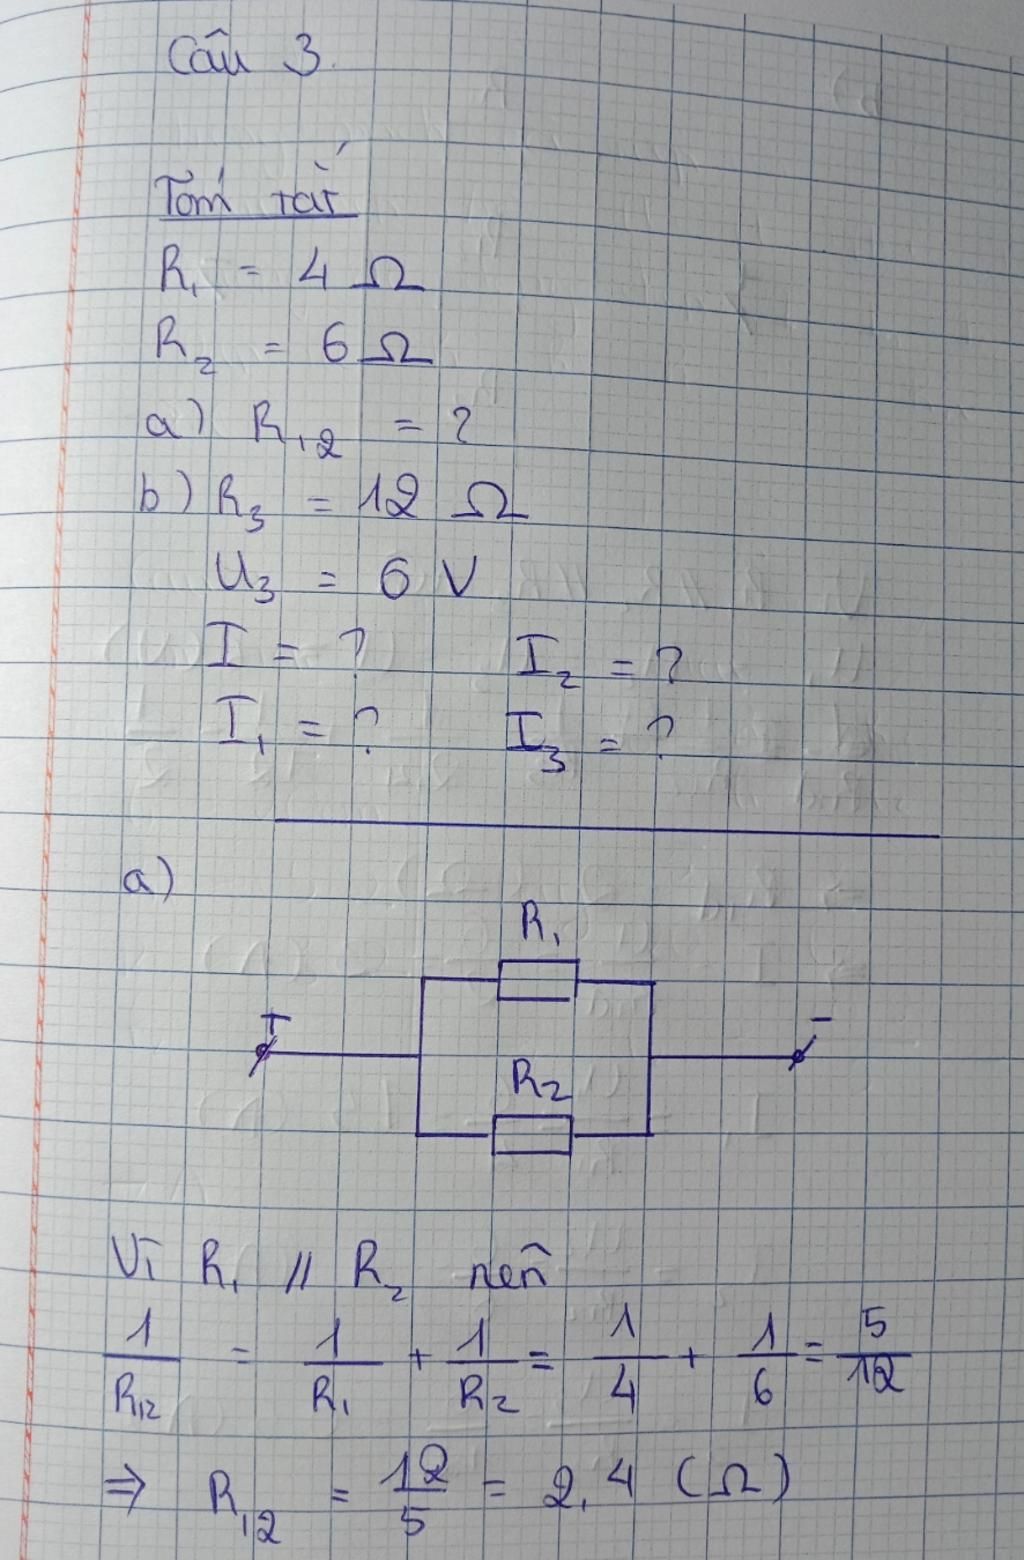 Câu 3.
Tóm tắt
R₁ = 4 Ω
R₂ = 6 Ω
a) R₁₂ = ?
b) R₃ = 12 Ω
U₃ = 6 V
I = ? I₂ = ?
I₁ = ? I₃ = ?
a)
R₁
+ -
R₂
Vì R₁ // R₂ nên
1/R₁₂ = 1/R₁ + 1/R₂ = 1/4 + 1/6 = 5/12
⇒ R₁₂ = 12/5 = 2,4 (Ω)